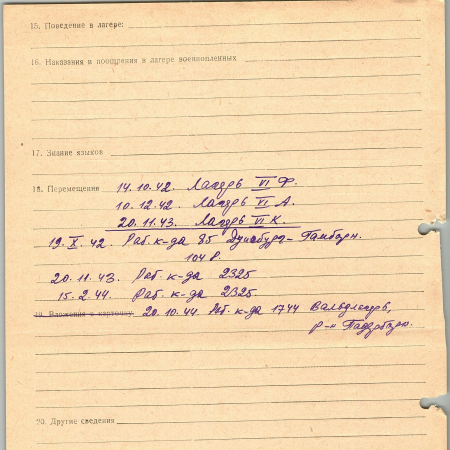 15. Поведение в лагере:
16. Наказания и поощрения в лагере военнопленных
17. Знание языков
18. Перемещения 14.10.42. Лагерь VI Ф.
10.12.42. Лагерь VI А.
20.11.43. Лагерь VI К.
19.X.42. Раб. к-да 85 Дуисбург-Гамборн.
104 Р.
20.11.43. Раб. к-да 2325
15.2.44. Раб. к-да 2325
19. Вложения в карточку 20.10.44. Раб. к-да 1744 Вальдлагерь,
р-н Падерборн.
20. Другие сведения